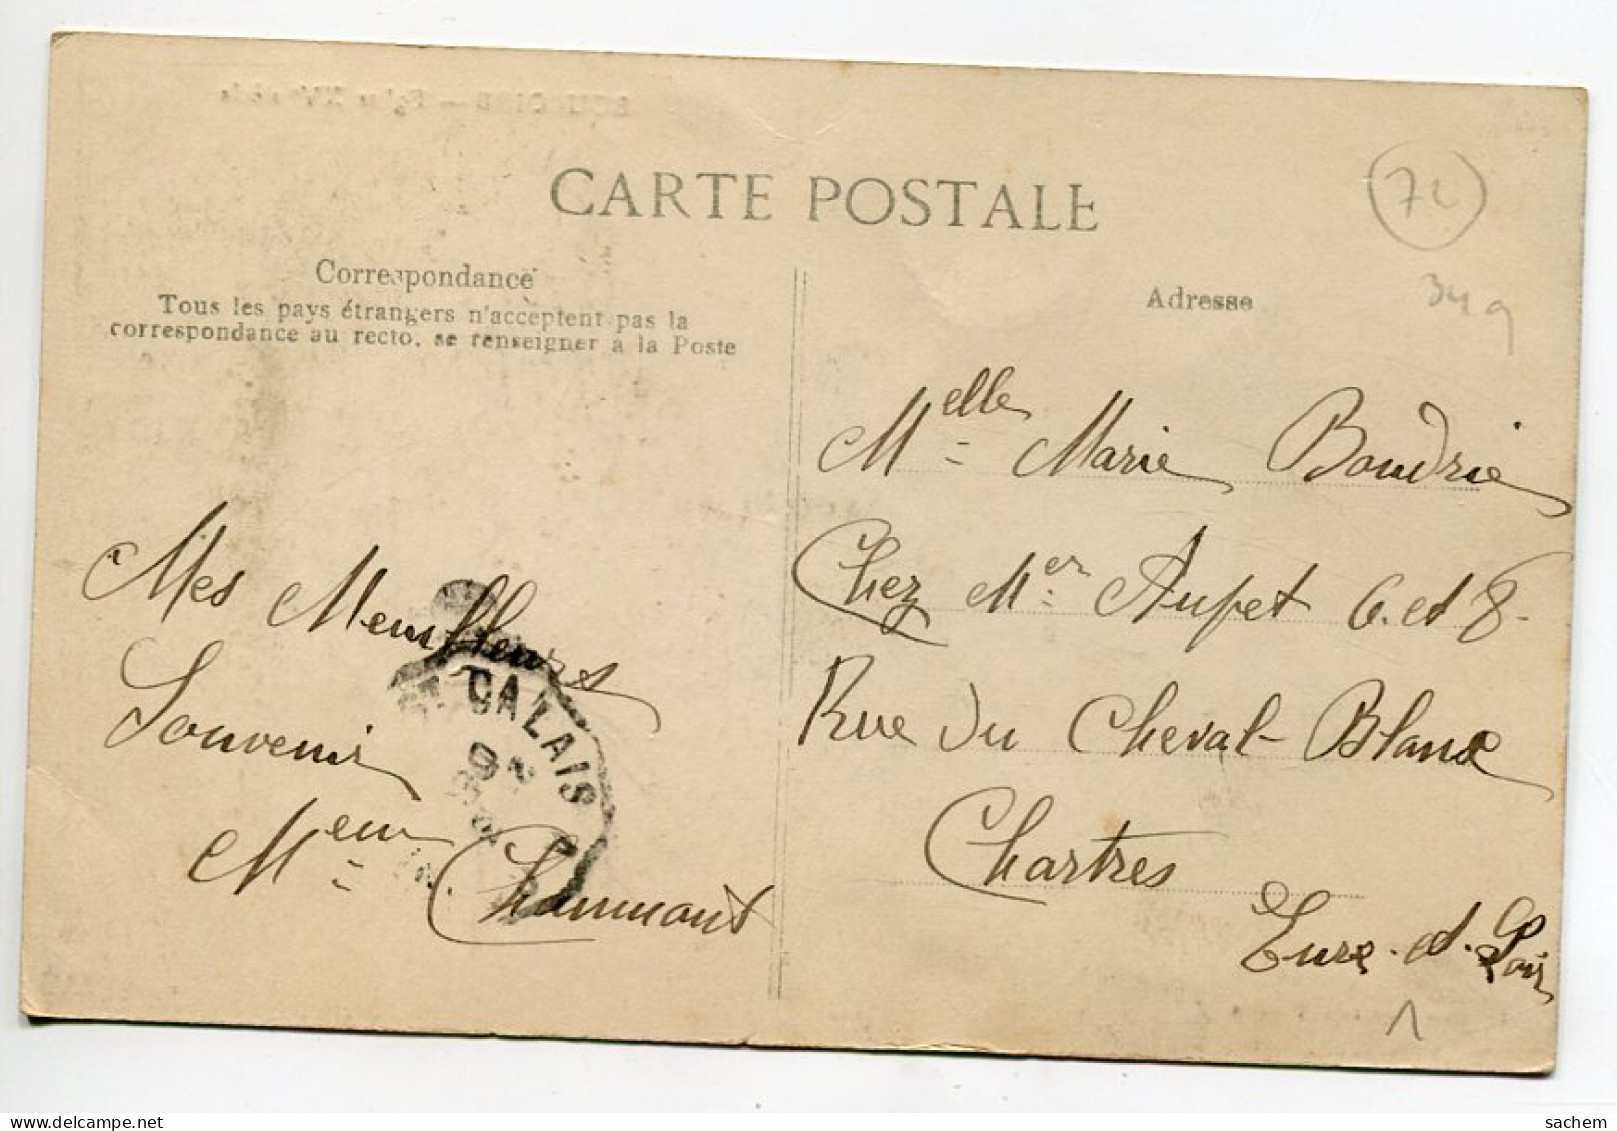 CARTE POSTALE
Correspondance
Tous les pays étrangers n'acceptent pas la
correspondance au recto, se renseigner à la Poste
Mes Meuilleurs
Souvenir
Chaumont
ST CALAIS
Adresse
72
349
Melle Marie Boudrie
Chez Mer Aupet 6. et 8.
Rue Du Cheval Blanc
Chartres
Eure-et-Loir
sachem
delcampe.net